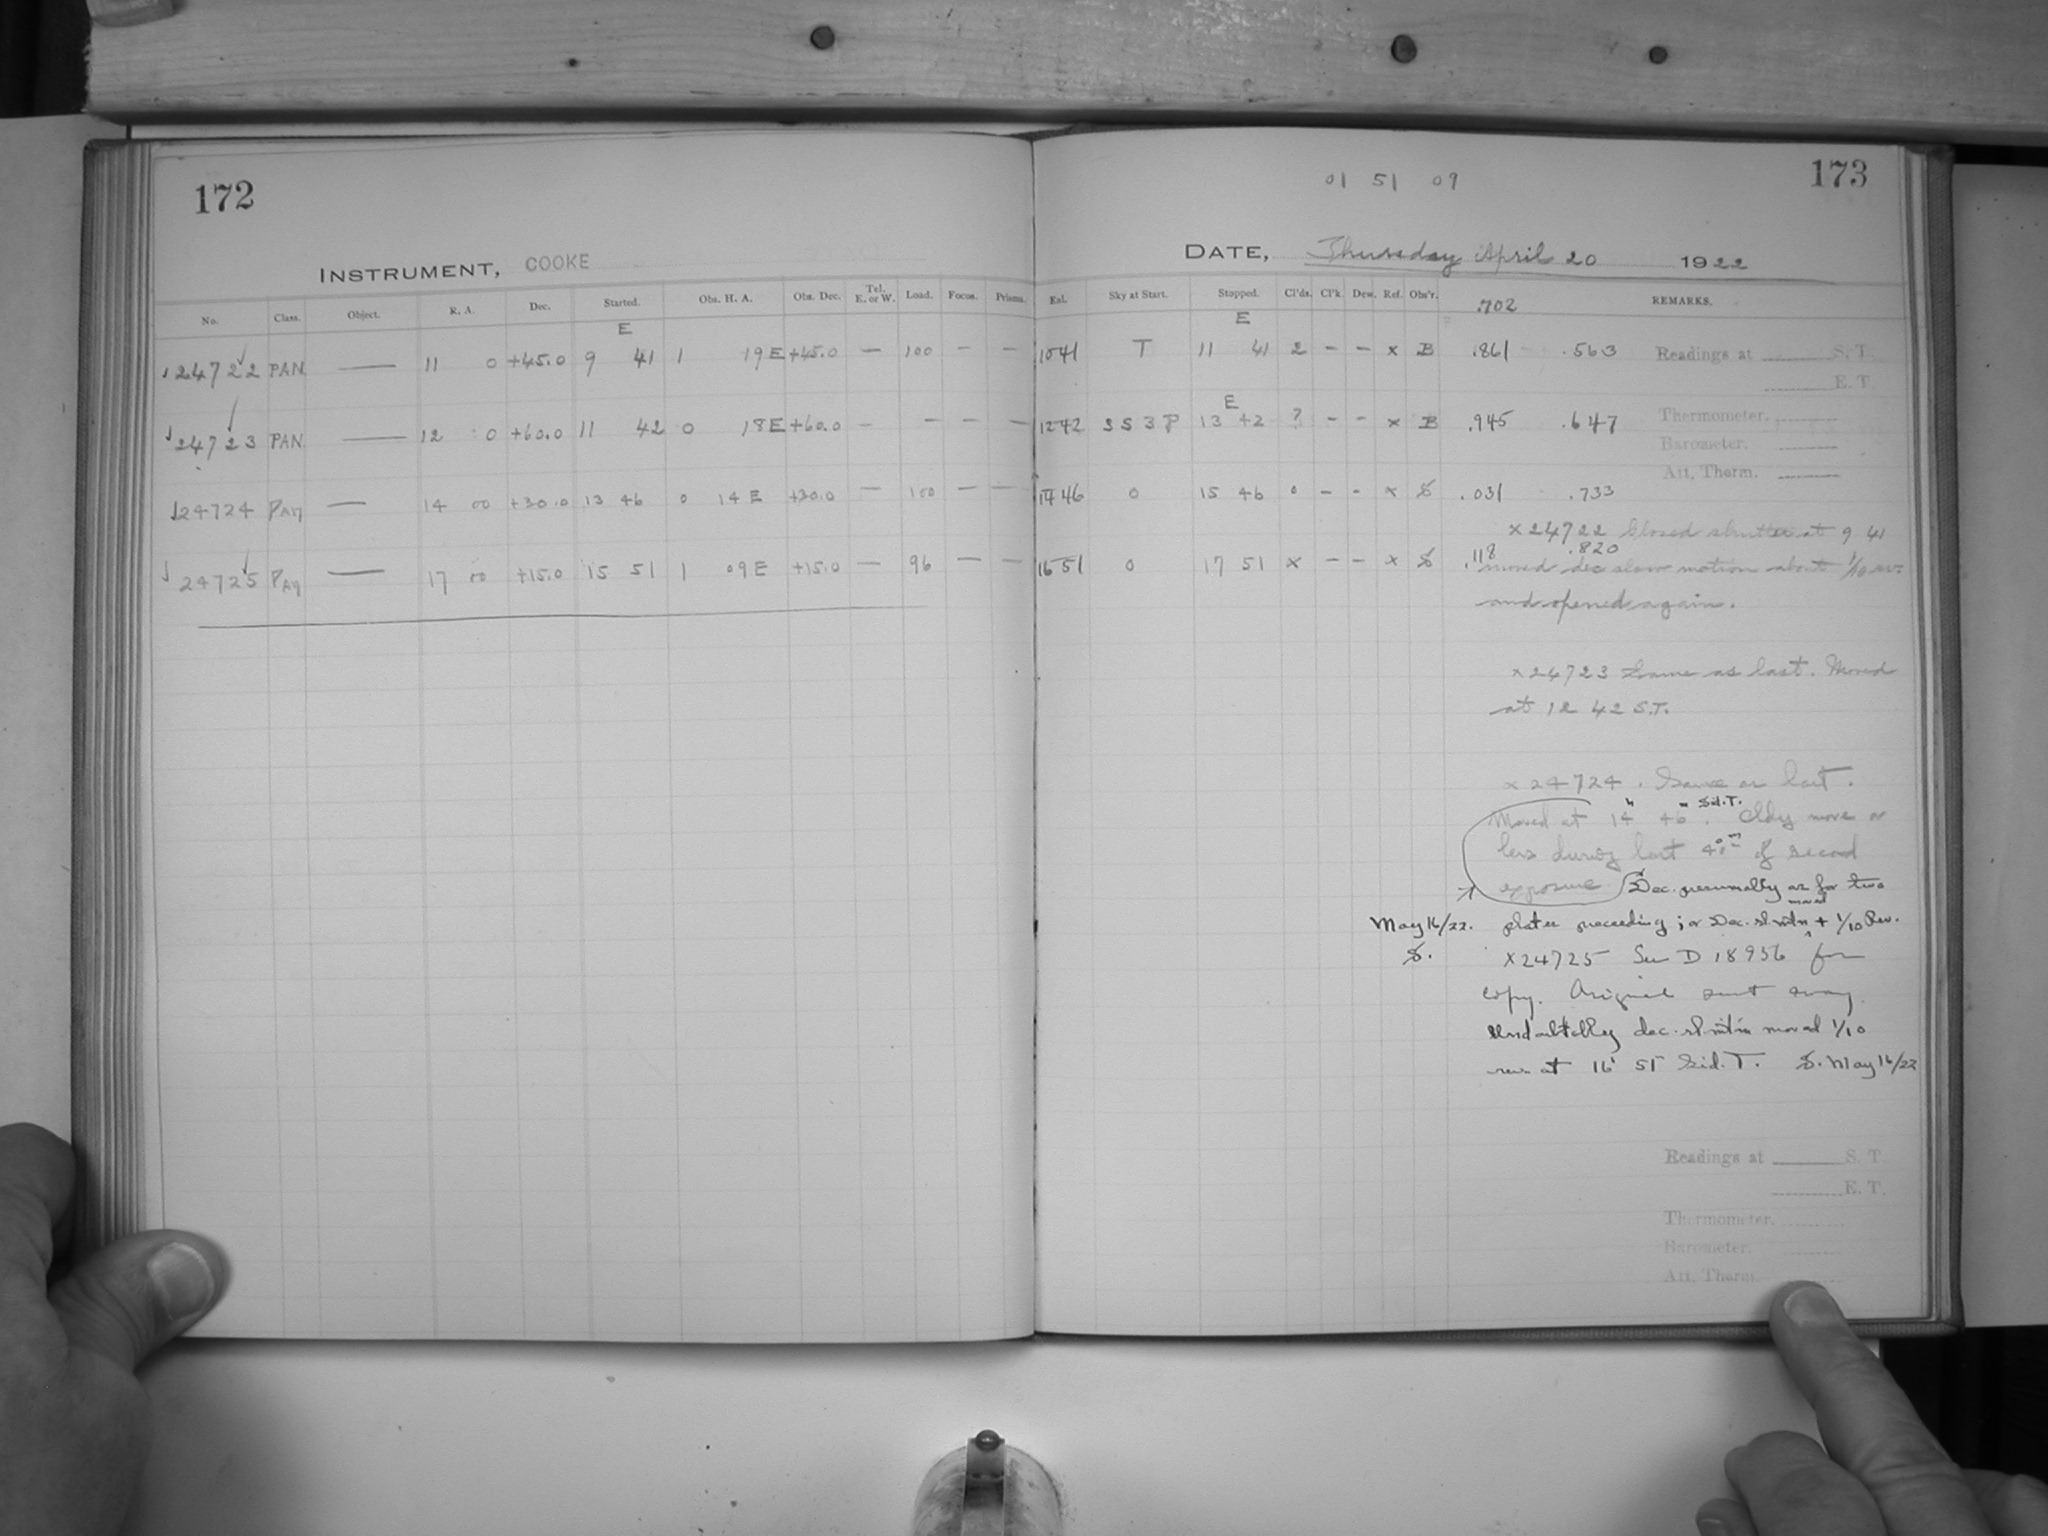 172
INSTRUMENT, COOKE
No. Class. Object. R. A. Dec. Started. Obs. H. A. Obs. Dec. Tel. E. or W. Load. Focus. Prisms.
E
24722 PAN. — 11 0 +45.0 9 41 1 19 E +45.0 — 100 — —
24723 PAN — 12 0 +60.0 11 42 0 18 E +60.0 — — —
24724 Pan — 14 00 +30.0 13 46 0 14 E +30.0 — 100 — —
24725 Pan — 17 00 +15.0 15 51 1 09 E +15.0 — 96 — —
173
01 51 09
DATE, Thursday April 20 1922
Exl. Sky at Start. Stopped. Cl'ds. Cl'k. Dew. Ref. Obs'r. .702 REMARKS.
E
1041 T 11 41 2 - - x B .861 .563 Readings at S. T.
E. T
E
1242 3 S 3 P 13 42 ? - - x B .945 .647 Thermometer.
Barometer.
Att. Therm.
1446 0 15 46 0 - - x S .031 .733
x 24722 Closed shutter at 9 41
1651 0 17 51 x - - x S .118 .820
moved dec slow motion about 1/10 rev.
and opened again.
x 24723 Same as last. Moved
at 12 42 S.T.
x 24724. Same as last.
Moved at 14 46 Sid. T. Cldy more or
less during last 40m of second
exposure Dec. presumably as for two
May 16/22. plates preceeding; or Dec. sl. mtn moved + 1/10 Rev.
S. x24725 See D 18956 for
copy. Original sent away.
Undoubtedly dec. sl. mtn moved 1/10
rev. at 16 51 Sid. T. S. May 16/22
Readings at S. T.
E. T.
Thermometer.
Barometer.
Att. Therm.